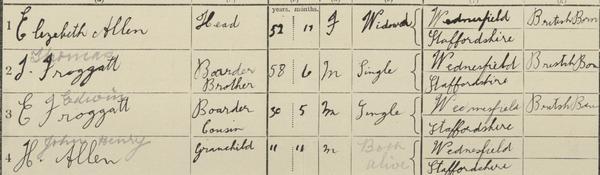 years. months.
1 Elizabeth Allen Head 52 11 F Widow Wednesfield British Born
Staffordshire
Thomas
2 T. Froggatt Boarder 58 6 M Single Wednesfield British Born
Brother Staffordshire
Edwin
3 E Froggatt Boarder 30 5 M Single Wednesfield British Born
Cousin Staffordshire
John Henry
4 H. Allen Granchild 11 11 M Both Wednesfield
alive Staffordshire